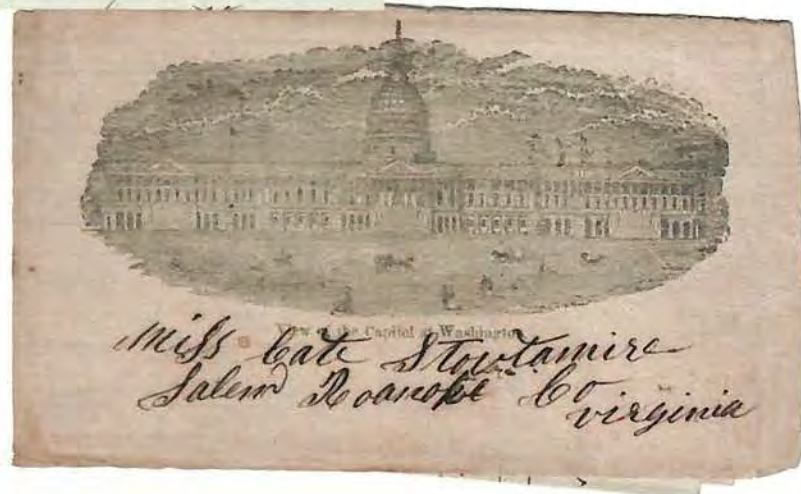 View of the Capitol at Washington
Miss Cate Stowtamire
Salem Roanoke Co
virginia